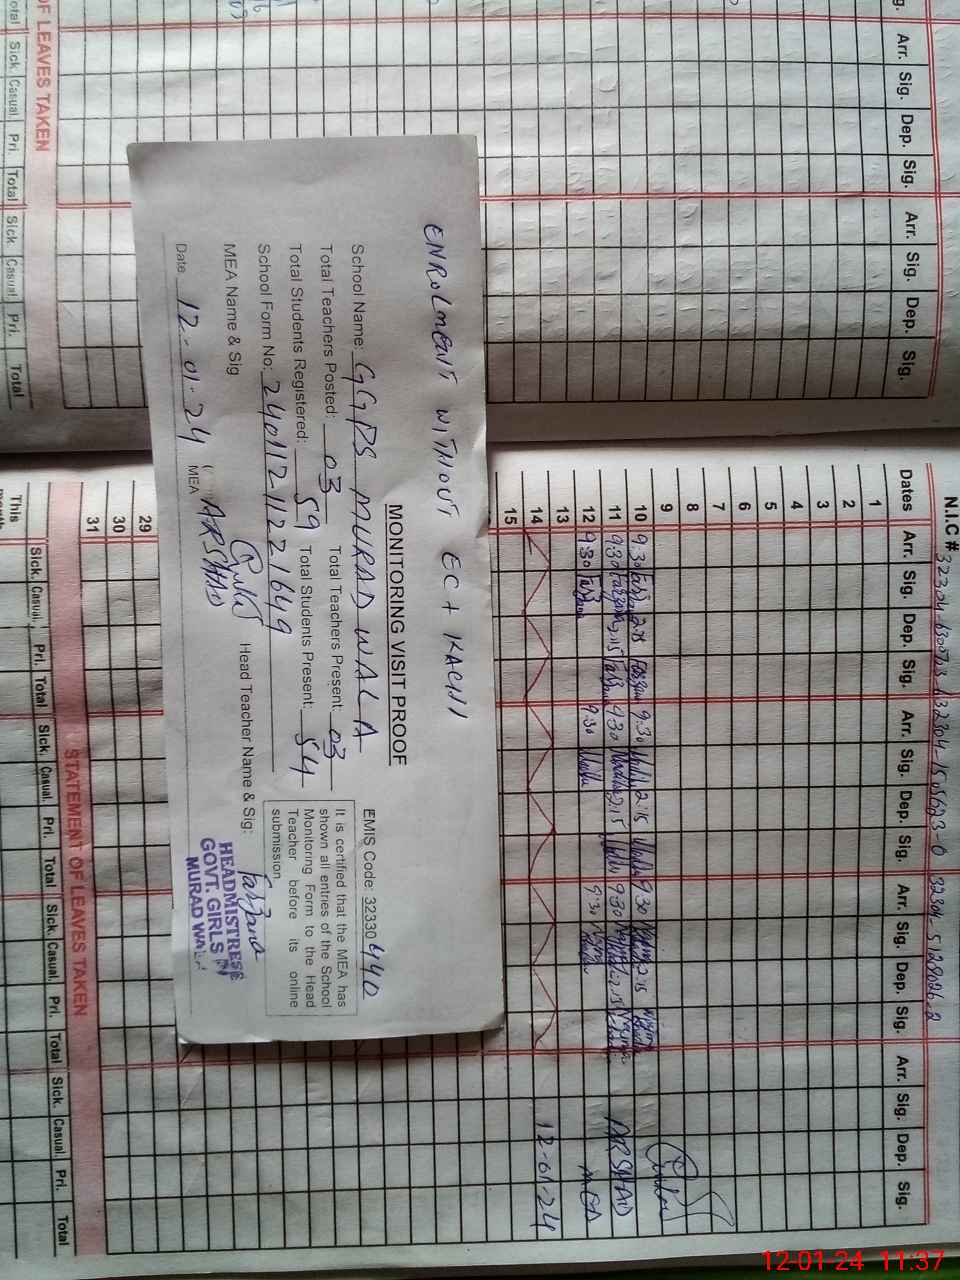 ENROLMENT WITHOUT EC + KACHI
MONITORING VISIT PROOF
School Name: GGPS MURAD WALA
EMIS Code: 32330440
Total Teachers Posted: 03 Total Teachers Present: 03
Total Students Registered: 59 Total Students Present: 54
School Form No: 24011211221649
It is certified that the MEA has
shown all entries of the School
Monitoring Form to the Head
Teacher before its online
submission
MEA Name & Sig
Head Teacher Name & Sig: Farzana
MEA ARSHAD
Date 12-01-24
HEADMISTRESS
GOVT. GIRLS
MURAD WALA
OF LEAVES TAKEN
Sick. Casual. Pri. Total Sick. Casual. Pri. Total
Arr. Sig. Dep. Sig. Arr. Sig. Dep. Sig.
N.I.C #
Dates Arr. Sig. Dep. Sig. Arr. Sig. Dep. Sig. Arr. Sig. Dep. Sig. Arr. Sig. Dep. Sig.
1
2
3
4
5
6
7
8
9
10 9:30 2:15 9:30 2:15 9:30 2:15
11 9:30 2:15 9:30 2:15 9:30 2:15 ARSHAD
12 9:30 Farzana 9:30 9:30 MEA
13
14 12-01-24
15
29
30
31
STATEMENT OF LEAVES TAKEN
This Sick. Casual. Pri. Total Sick. Casual. Pri. Total Sick. Casual. Pri. Total Sick. Casual. Pri. Total
12-01-24 11:37